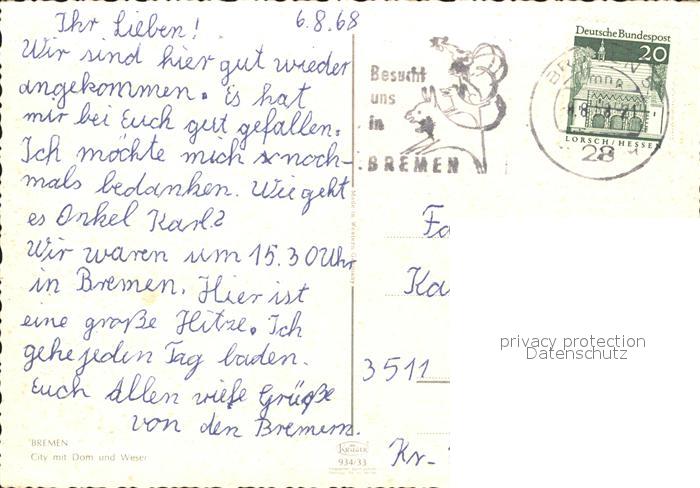 Ihr Lieben!
6.8.68
Wir sind hier gut wieder
angekommen. Es hat
mir bei Euch gut gefallen.
Ich möchte mich noch-
mals bedanken. Wie geht
es Onkel Karl?
Wir waren um 15.30 Uhr
in Bremen. Hier ist
eine große Hitze. Ich
gehe jeden Tag baden.
Euch Allen viele Grüße
von den Bremern.
BREMEN
City mit Dom und Weser
Made in Western Germany
KRÜGER
934/33
Besucht
uns
in
BREMEN
Deutsche Bundespost
20
LORSCH/HESSEN
28
Fa
Ka
3511
Kr.-
privacy protection
Datenschutz